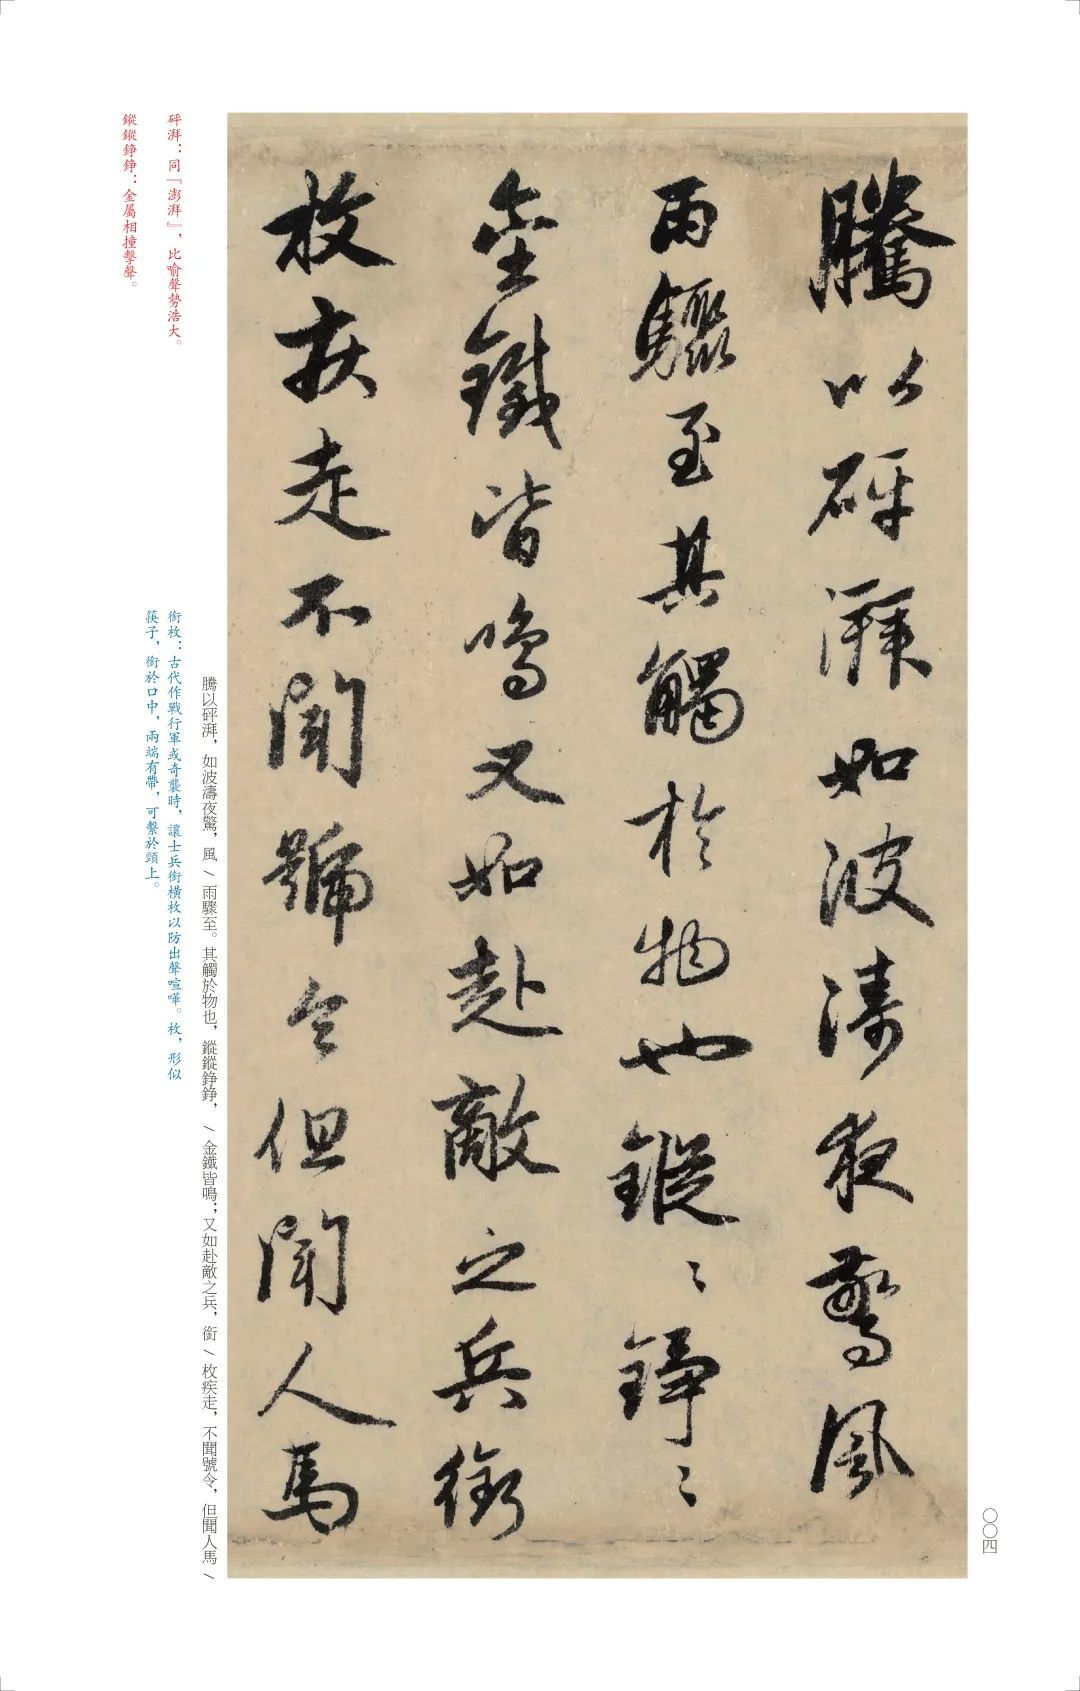 〇〇四
騰以砰湃如波濤夜驚風
雨驟至其觸於物也鏦〻錚〻
金鐵皆鳴又如赴敵之兵銜
枚疾走不聞號令但聞人馬
騰以砰湃，如波濤夜驚，風／雨驟至。其觸於物也，鏦鏦錚錚，／金鐵皆鳴；又如赴敵之兵，銜／枚疾走，不聞號令，但聞人馬／
砰湃：同『澎湃』，比喻聲勢浩大。
鏦鏦錚錚：金屬相撞擊聲。
銜枚：古代作戰行軍或奇襲時，讓士兵銜橫枚以防出聲喧嘩。枚，形似
筷子，銜於口中，兩端有帶，可繫於頸上。